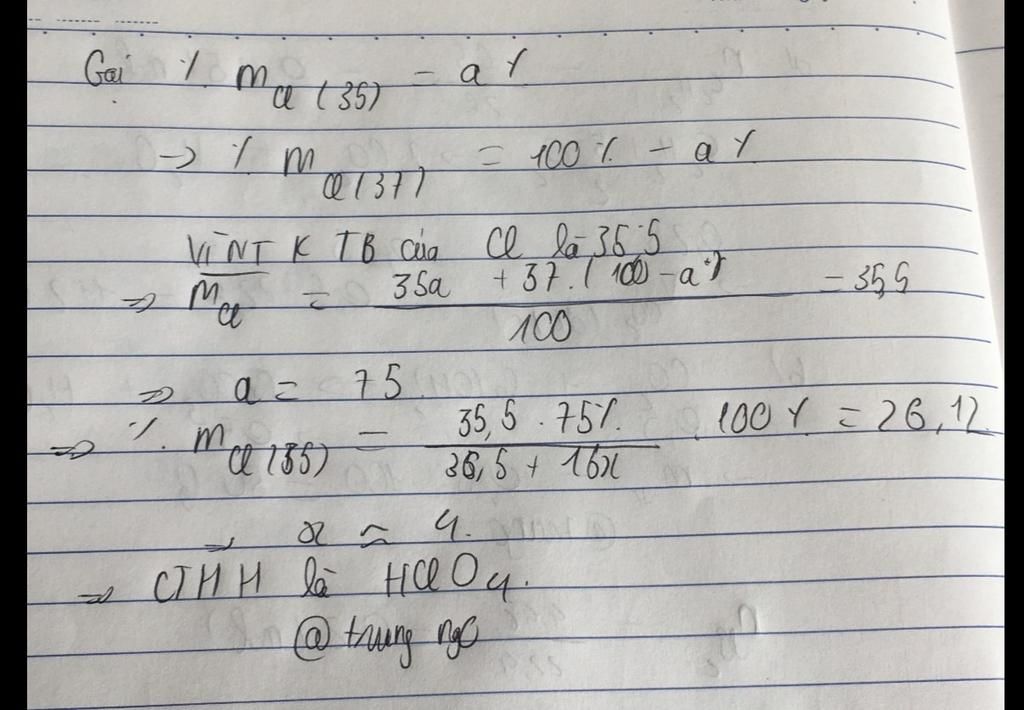 Gọi % m Cl (35) = a %
→ % m Cl (37) = 100 % - a %
Vì NTK TB của Cl là 35,5
⇒ M Cl = (35a + 37.(100 - a)) / 100 = 35,5
⇒ a = 75
⇒ % m Cl (35) = (35,5 . 75%) / (36,5 + 16x) . 100 % = 26,12
⇒ x ≈ 4.
⇒ CTHH là HClO4.
@ trung ngo